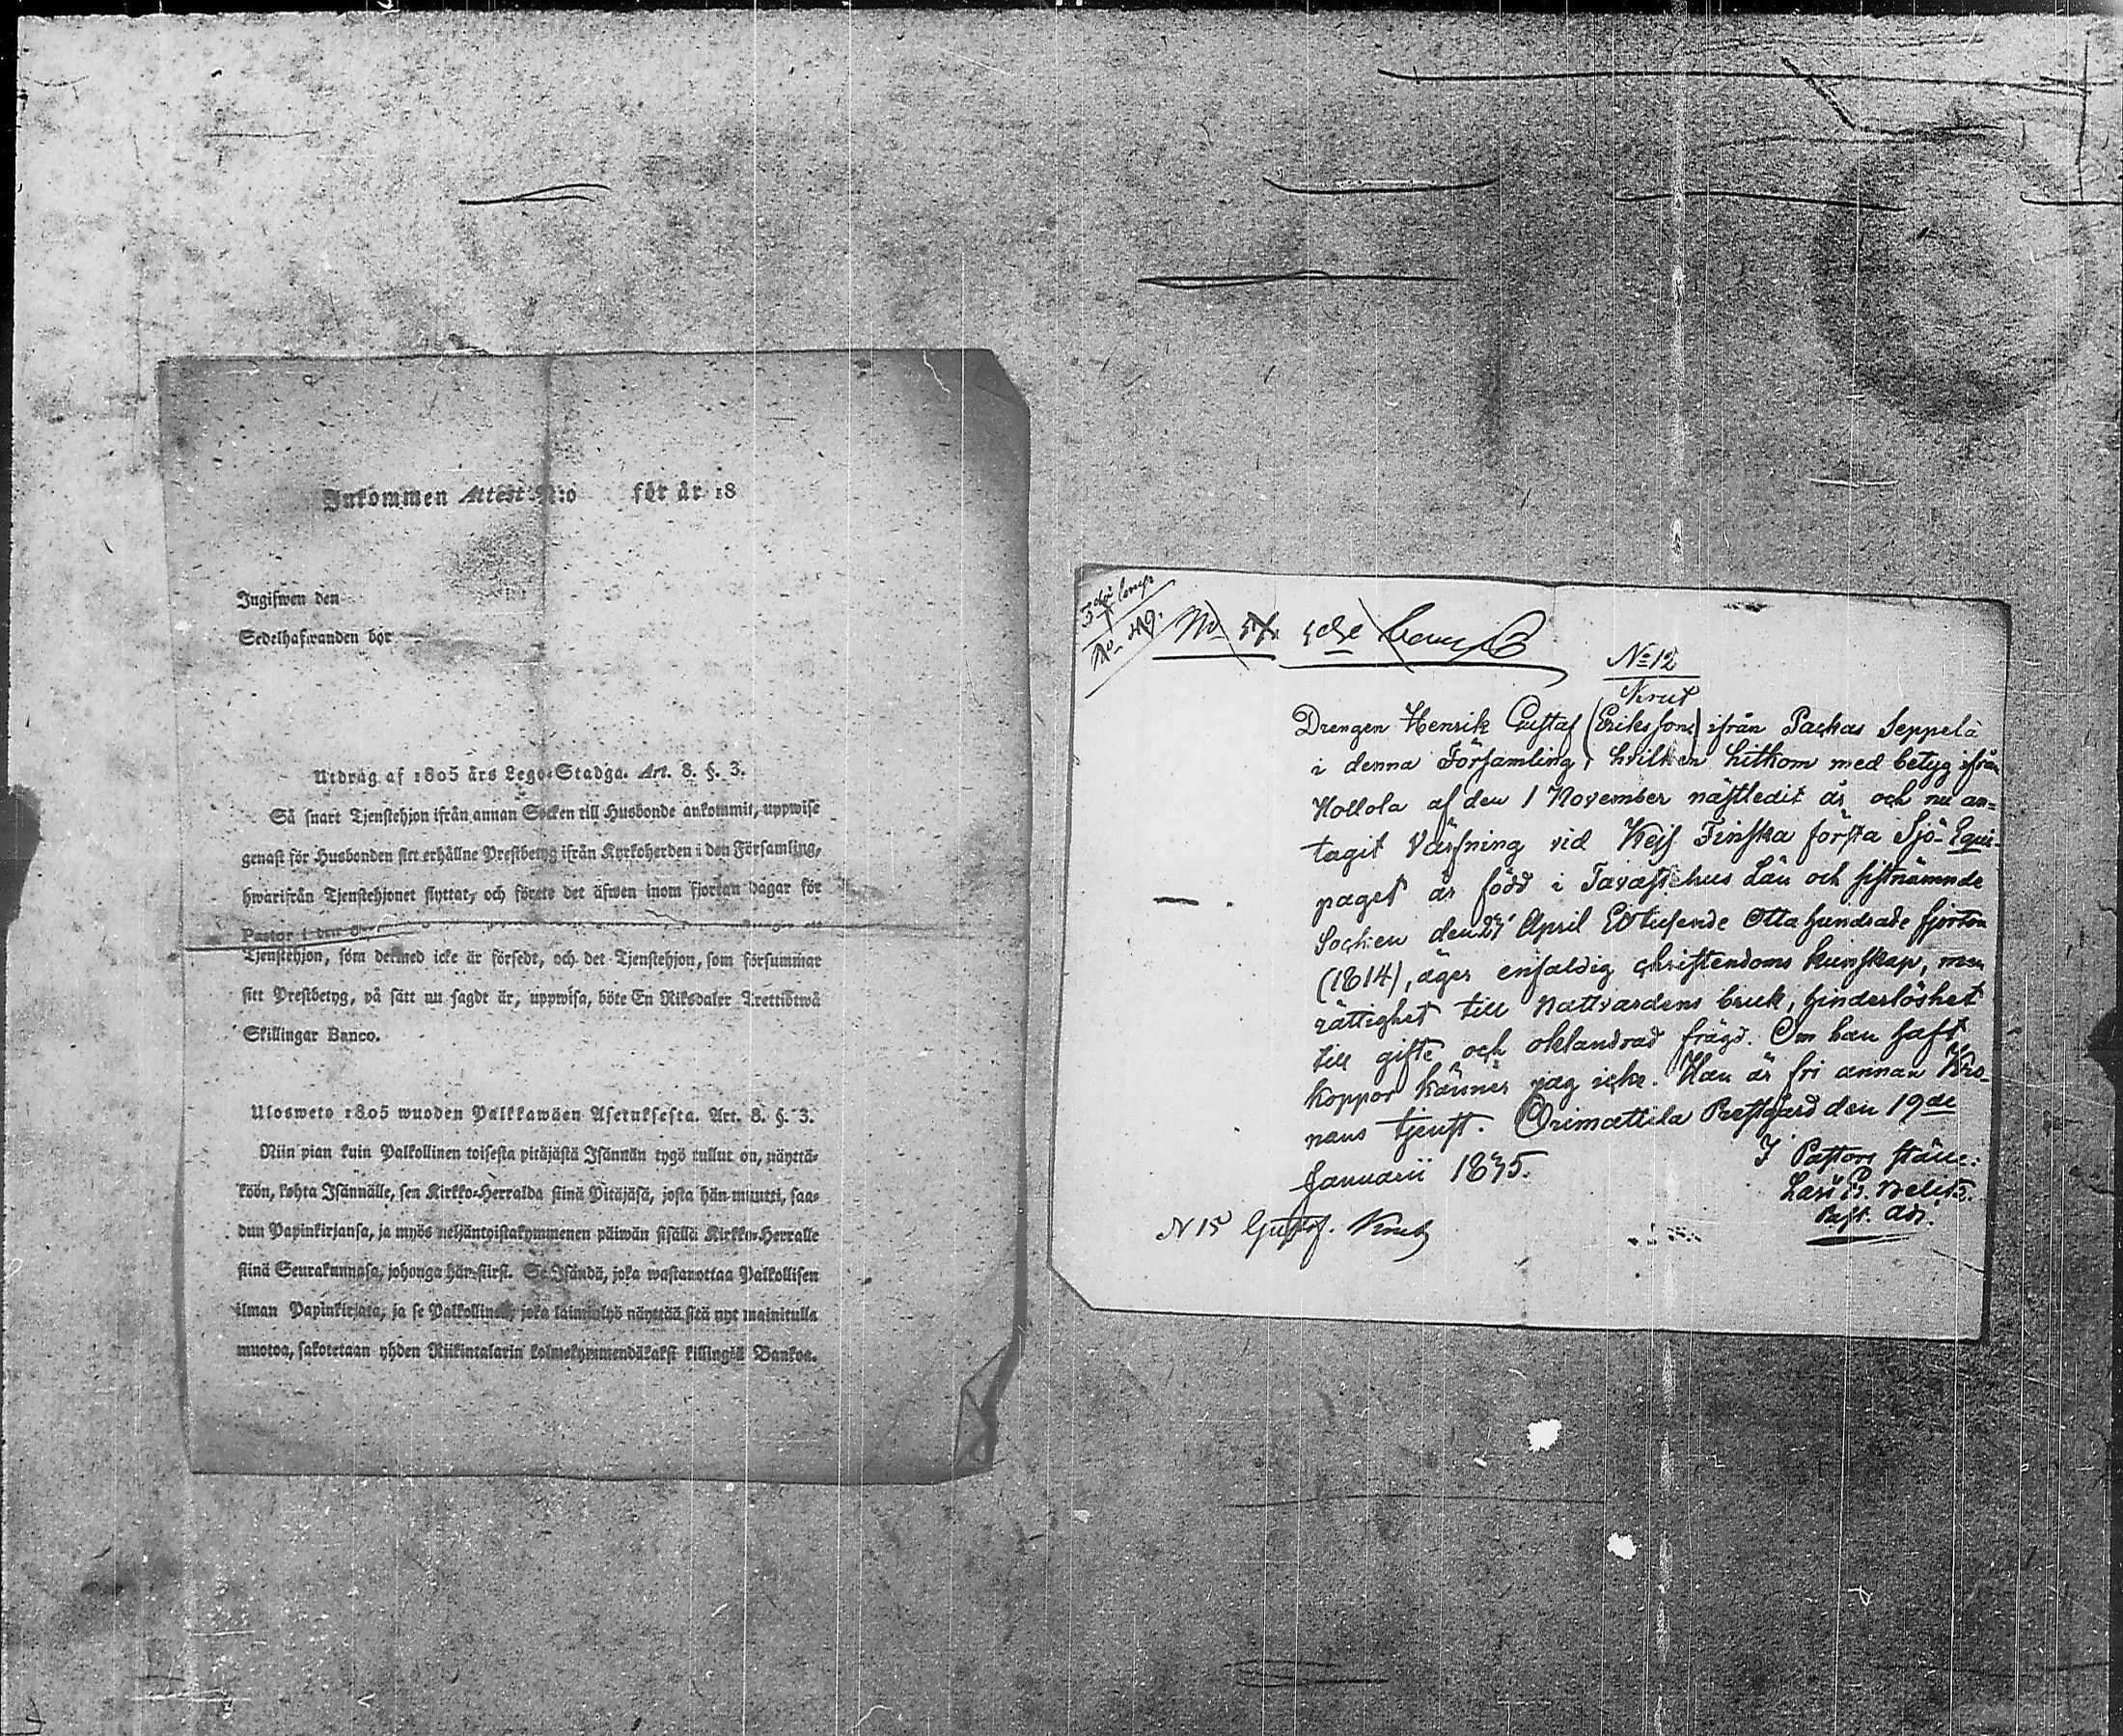 Inkommen Attest N:o för år 18
Ingifwen den
Sedelhafwanden bör
Utdrag af 1805 års Lego-Stadga. Art. 8. §. 3.
Så snart Tjenstehjon ifrån annan Socken till Husbonde ankommit, uppwise
genast för Husbonden sitt erhållne Prestbetyg ifrån Kyrkoherden i den Församling,
hwarifrån Tjenstehjonet flyttat, och förete det äfwen inom fjorton dagar för
Pastor i den
Tjenstehjon, som dermed icke är försedt, och det Tjenstehjon, som försummar
sitt Prestbetyg, på sätt nu sagdt är, uppwisa, böte En Riksdaler Trettiotwå
Skillingar Banco.
Ulosweto 1805 wuoden Palkkawäen Asetuksesta. Art. 8. §. 3.
Niin pian kuin Palkollinen toisesta pitäjästä Isännän tygö tullut on, näyttä-
köön, kohta Isännälle, sen Kirkko-Herralda siinä Pitäjäsä, josta hän muutti, saa-
dun Papinkirjansa, ja myös neljäntoistakymmenen päiwän sisällä Kirkko-Herralle
siinä Seurakunnasa, johonga hän siirsi. Se Isändä, joka wastanottaa Palkollisen
ilman Papinkirjata, ja se Palkollinen, joka laiminlyö näyttää sitä nyt mainitulla
muotoa, sakotetaan yhden Riikintalarin kolmekymmendäkaksi killingiä Bankoa.
5 dje Comp
No 219.
No 57. 5dje Comp
No 12
Knut
Drengen Henrik Gustaf (Eriksson) ifrån Packas Seppelä
i denna Församling, hvilken hitkom med betyg ifrån
Hollola af den 1 November nästledit år och nu an-
tagit Värfning vid Kejs. Finska första Sjö-Equi-
paget är född i Tavastehus Län och sistnämnde
Sochen den 27 April Ettusende Ottahundrade fjorton
(1814), äger enfaldig christendoms kunskap, men
rättighet till Nattvardens bruk, hinderlöshet
till gifte och oklandrad frägd. Om han haft
koppor känner jag icke. Han är fri annan Kro-
nans tjenst. Orimattila Prestgård den 19de
Januarii 1835.
I Pastors ställe:
Past. Adj.
N 15 Gustaf. Knut